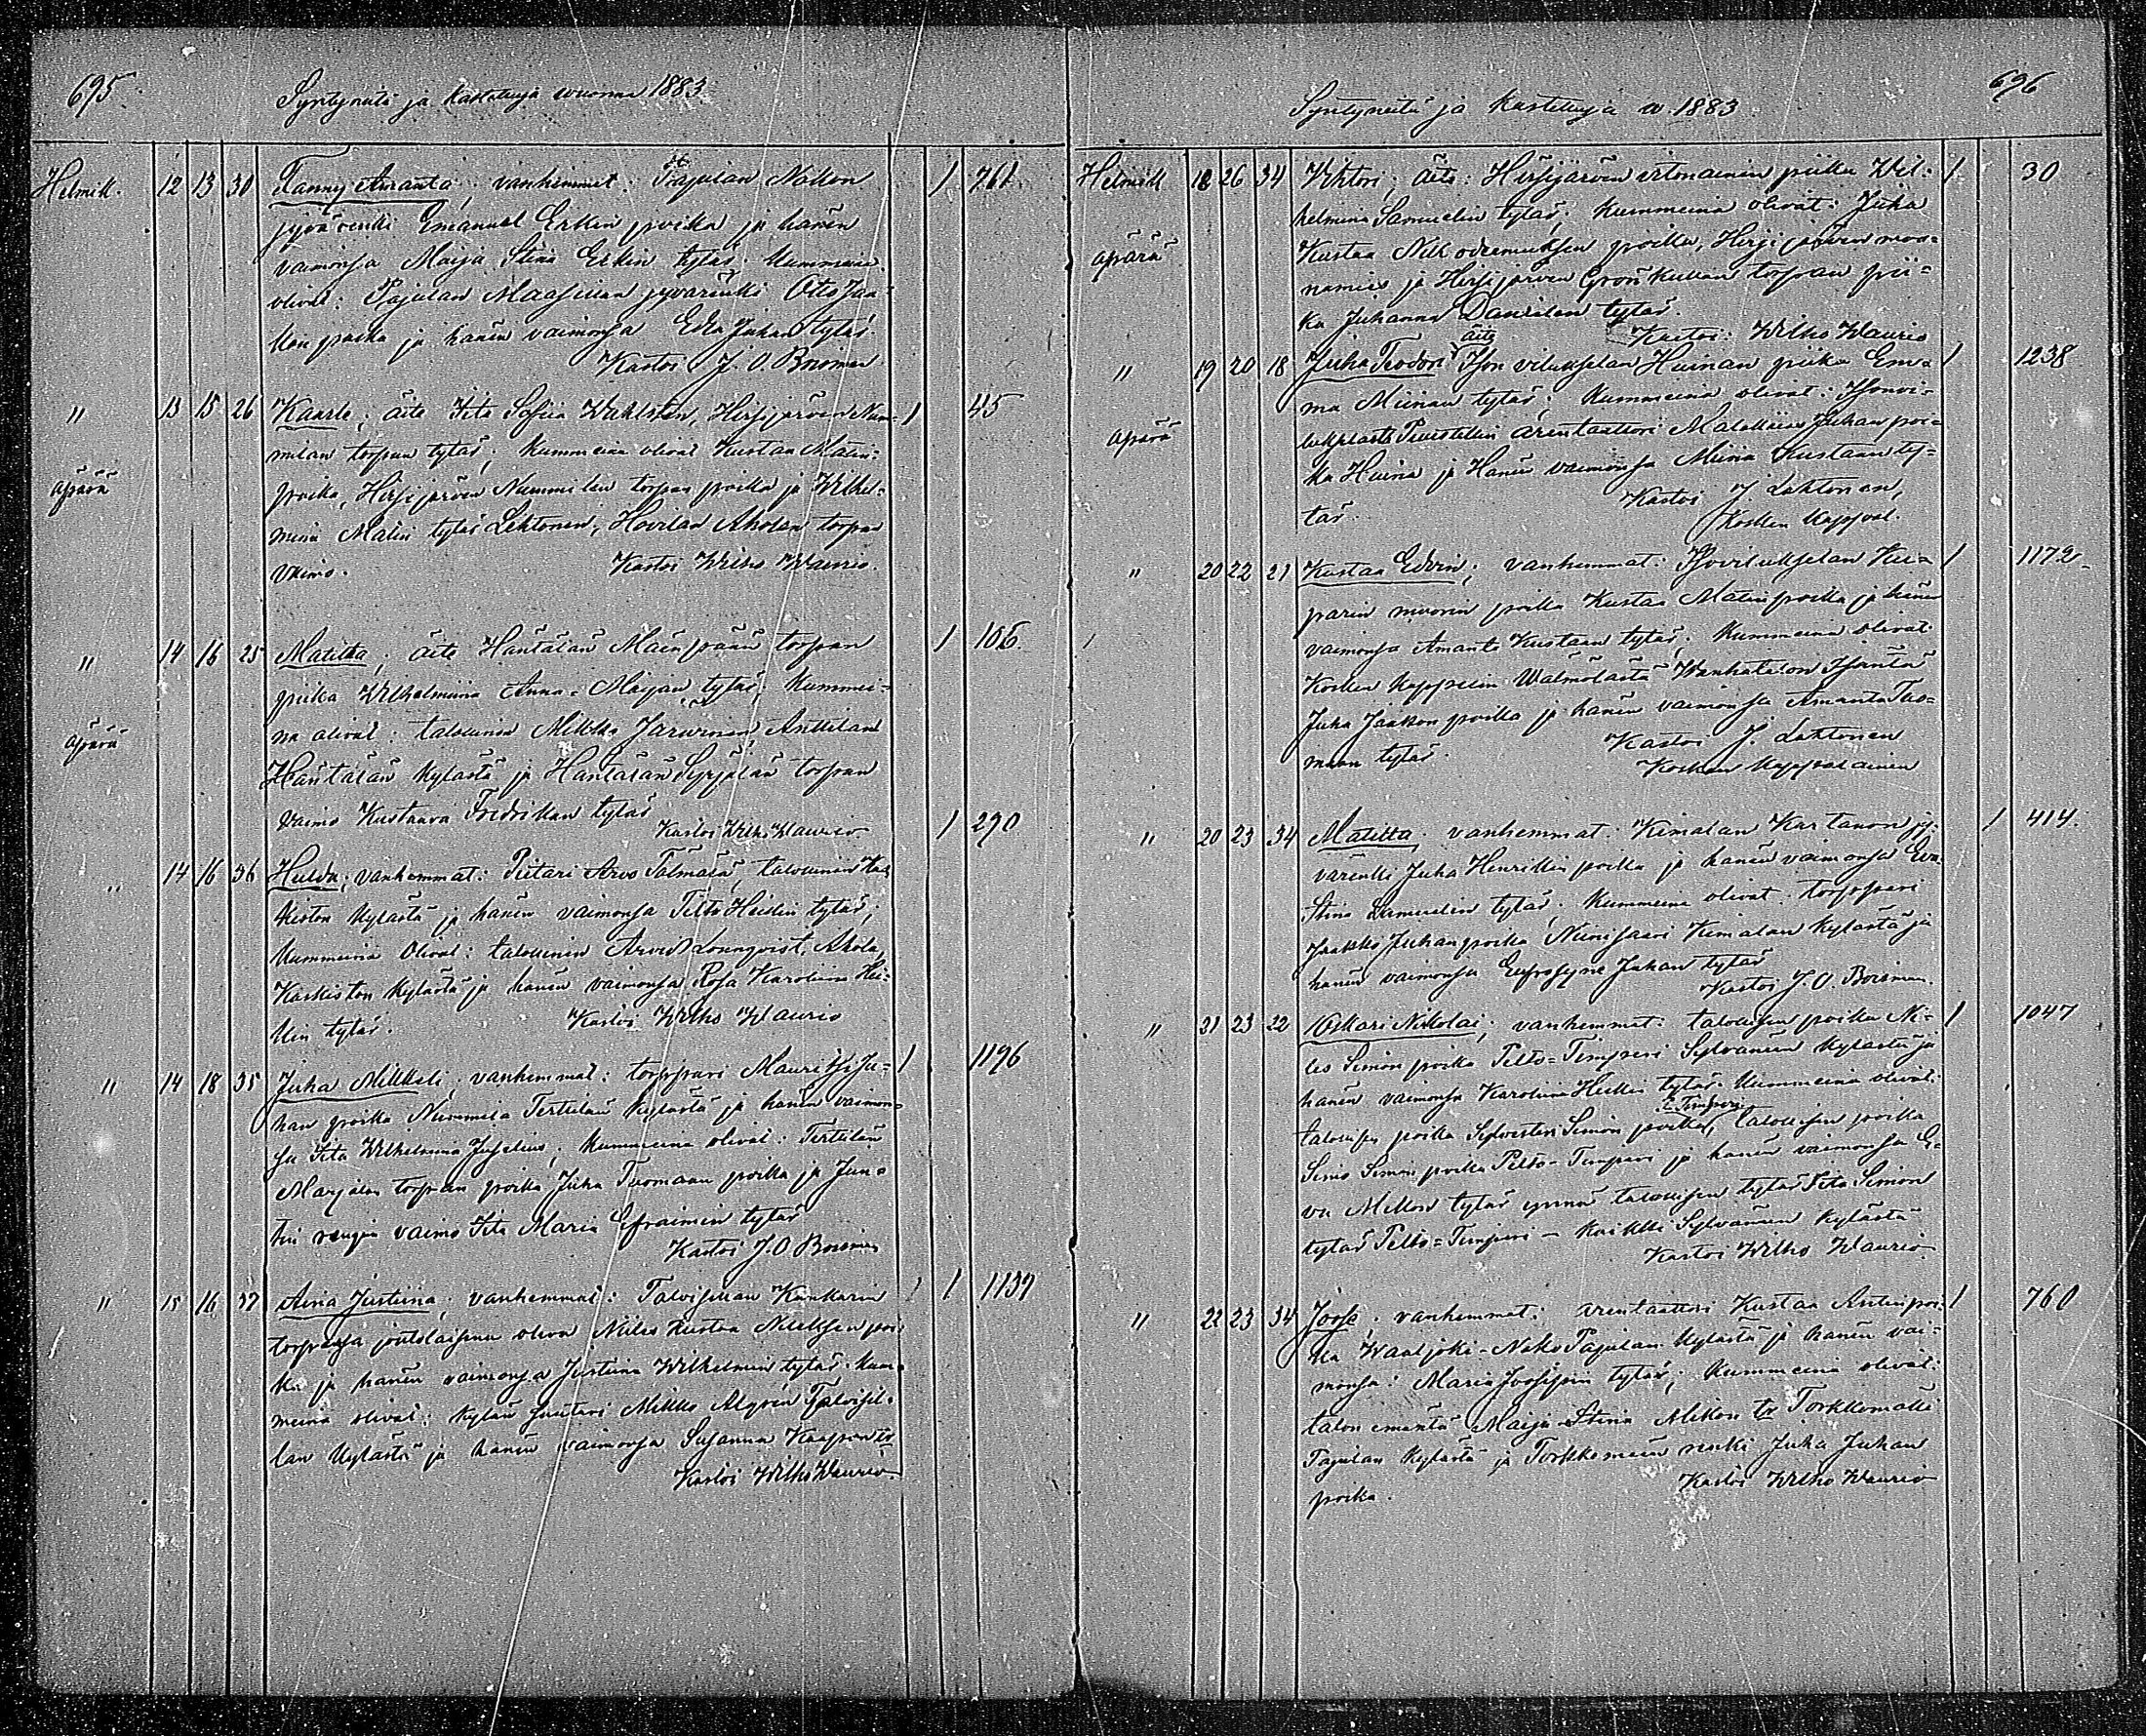 695
Syntyneitä ja kastettuja wuonna 1883
Helmik. 12 13 30 Fanny Amanta; vanhemmat: Pajulan Nokon 1 761
jyvärenki Emanuel Erkin poika ja hänen
vaimonsa Maija Stina Erkin tytär. Kummeina
olivat: Pajulan Maasillan jyvärenki Otto Jaa-
kon poika ja hänen vaimonsa Eva Juhan tytär.
Kastoi J. O. Bonsman
" 13 15 26 Kaarle; äiti Iita Sofiia Wahlsten, Hirsijärven Num- 1 45
milan torpan tytär; Kummeina olivat Kustaa Matin-
äpärä
poika, Hirsijärven Nummilan torpan poika ja Wilhel-
miina Matin tytär Lehtonen, Hovilan Aholan torpan
vaimo. Kastoi Wilho Waurio.
" 14 16 25 Matilta; äiti Häntälän Mäenpään torpan 1 106.
piika Wilhelmiina Anna-Maijan tytär; Kummei-
na olivat: talollinen Mikko Anttilan
äpärä
Häntälän kylästä ja Häntälän Syrjälän torpan
vaimo Kustaava Fredrikan tytär
Kastoi Wilho Waurio
" 14 16 36 Hulda; vanhemmat: Pietari Arvo Talmala, talollinen Kas- 1 270
kiston kylästä ja hänen vaimonsa Tilta Heikin tytär;
Kummeina olivat: talollinen Arvid Lounqvist, Ahola,
Kaskiston kylästä ja hänen vaimonsa Rosa Karoliina Hei-
kin tytär. Kastoi Wilho Waurio
" 14 18 35 Juha Mikkeli; vanhemmat: torppari Mauritsi Ju- 1 1196
han poika Nummila Terttilän kylästä ja hänen vaimon-
sa Iita Wilhelmiina Juselius; Kummeina olivat: Terttilän
Marjalan torpan poika Juha Tuomaan poika ja Jun-
tin rengin vaimo Iita Maria Efraimin tytär
Kastoi J. O. Bonsman
" 15 16 37 Aina Justiina; vanhemmat: Talvisillan Kankarin 1 1139
torpassa joutolaisena oleva Niilo Kustaa Niilksen poi-
ka ja hänen vaimonsa Justiina Wilhelmin tytär. Kum-
meina olivat: kylän suutari Mikko Alqvén Talvisil-
lan kylästä ja hänen vaimonsa Susanna Kaapon tr
Kastoi Wilho Waurio
696
Syntyneitä ja kastettuja w. 1883
Helmik 18 26 34 Wihtori; äiti: Hirsijärven irtonainen piika Wil- 1 30
helmina Samuelin tytär; Kummeina olivat: Juha
äpärä
Kustaa Nikodemuksen poika, Hirsijärven
namies ja Hirsijärven Grönkullan torpan pii-
ka Juhanna Danielan tytär.
Kastoi: Wilho Waurio
" 19 20 18 Juha Teodor äiti Ison vilukselan Huinan piika Em- 1 1238
ma Miinan tytär; Kummeina olivat: Isonvi-
äpärä
lukselasta arentaattori Matolainen Juhan poi-
ka Huina ja Hänen vaimonsa Miina Kustaan ty-
tär. Kastoi J. Lehtonen,
Kosken Kappval.
" 20 22 21 Kustaa Edvin; vanhemmat: Isovilukselan Kui- 1 1172
parin nuorin poika Kustaa Matin poika ja hänen
vaimonsa Amanta Kustaan tytär; Kummeina olivat
Kosken Kappelin Walmolasta Wanhatalon Isäntä
Juha Jaakon poika ja hänen vaimonsa Amanta Tuo-
maan tytär. Kastoi J. Lehtonen
Kosken Kappalainen
" 20 23 34 Matilta; vanhemmat: Kimalan Kartanon jy- 1 414.
värenki Juha Henrikin poika ja hänen vaimonsa Eva
Stina Samuelin tytär; Kummeina olivat torppari
Jaakko Juhan poika Niinisaari Kimalan kylästä ja
hänen vaimonsa Eufrosyne Juhan tytär
Kastoi J. O. Bonsman.
" 21 23 22 Oskari Nikolai; vanhemmat: talollisen poika Ni- 1 1047
les Simon poika Pelto-Timperi Sylvänän kylästä ja
hänen vaimonsa Karoliina Heikin tytär. Kummeina olivat:
talollisen poika Sylvesteri Simon poika P. Timperi, talollisen poika
Simo Simon poika Pelto-Timperi ja hänen vaimonsa E-
va Mikon tytär ynnä talollisen tytär Iita Simon
tytär Pelto-Timperi – kaikki Sylvänän kylästä
Kastoi Wilho Waurio
" 22 23 34 Joose; vanhemmat: arentaattori Kustaa Antin poi- 1 760
ka Waaljoki-Noko Pajulan kylästä ja hänen vai-
monsa: Maria Joosepin tytär; Kummeina olivat:
talon emäntä Maija-Stina Mikon tr Torkkomäki
Pajulan kylästä ja Torkkomäen renki Juha Juhan
poika. Kastoi Wilho Waurio